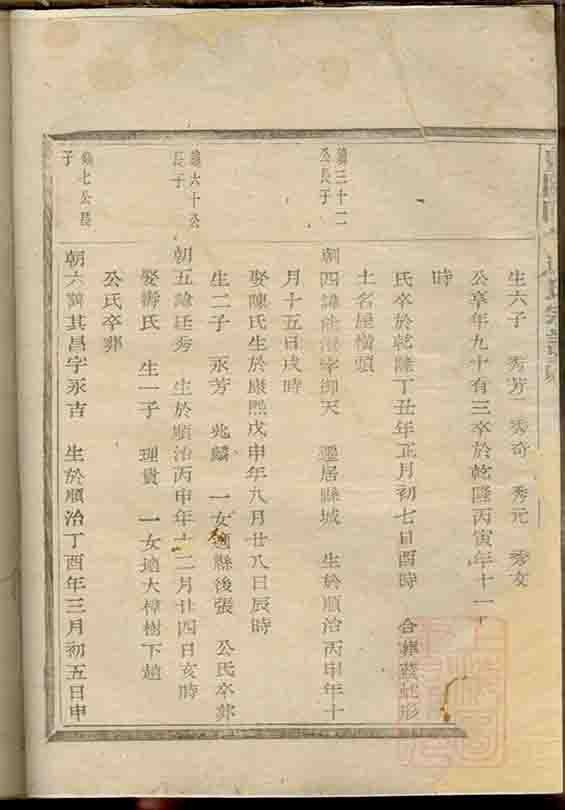 生六子 秀芳 秀奇 秀元 秀文
公享年九十有三卒於乾隆丙寅年十一
時
氏卒於乾隆丁丑年正月初七日酉時 合葬 蛇形
土名屋橫頭
鎮三十二
公長子
朝四諱 字御天 遷居縣城 生於順治丙申年十
月十五日戌時
娶陳氏生於康熙戊申年八月廿八日辰時
生二子 永芳 兆麟 一女適縣後張 公氏卒葬
鎮六十公
長子
朝五諭廷秀 生於順治丙申年十二月廿四日亥時
娶 氏 生一子 理貴 一女適大樟樹下趙
公氏卒葬
鎮七公長
子
朝六 其昌字永吉 生於順治丁酉年三月初五日申